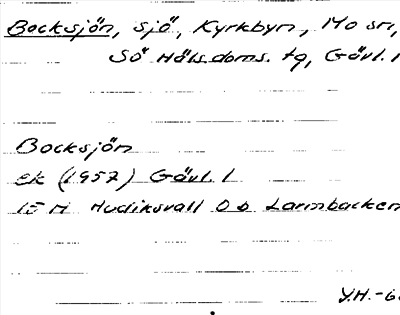 Bocksjön, sjö, Kyrkbyn, Mo sn,
Sö Hälsdoms. tg, Gävl. l
Bocksjön
ek (1957) Gävl. l
15 H Hudiksvall 0 b Larmbacken
Y.H. -6